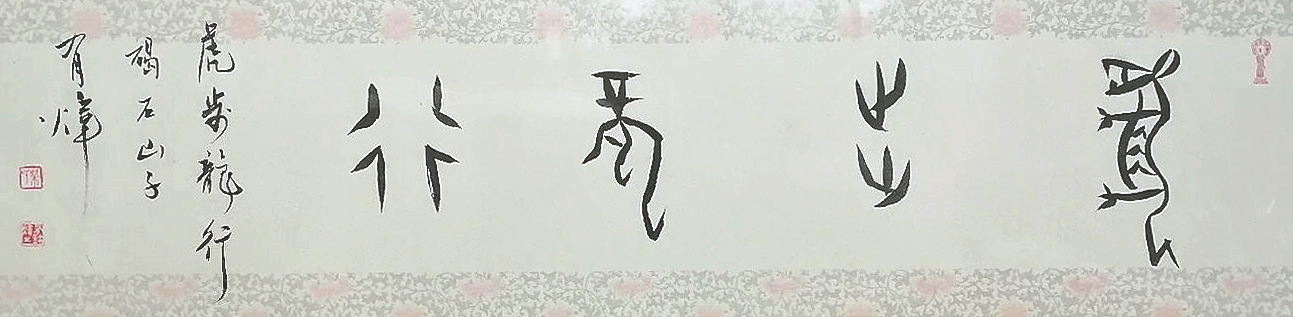 虎步龍行
虎步龍行
碣石山子
有煒